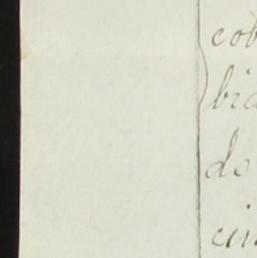 cob
bra
do
cin